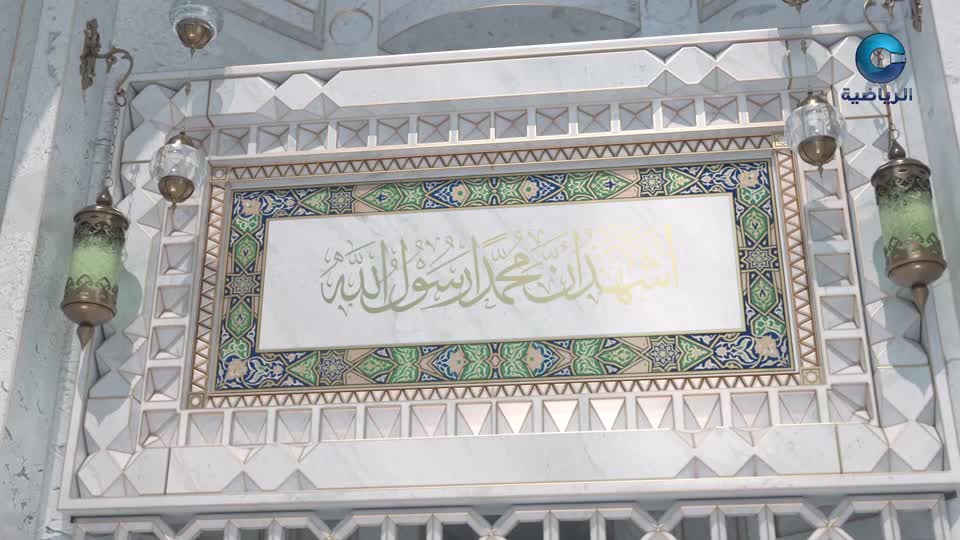 الرياضية
أشهد أن محمدًا رسول الله